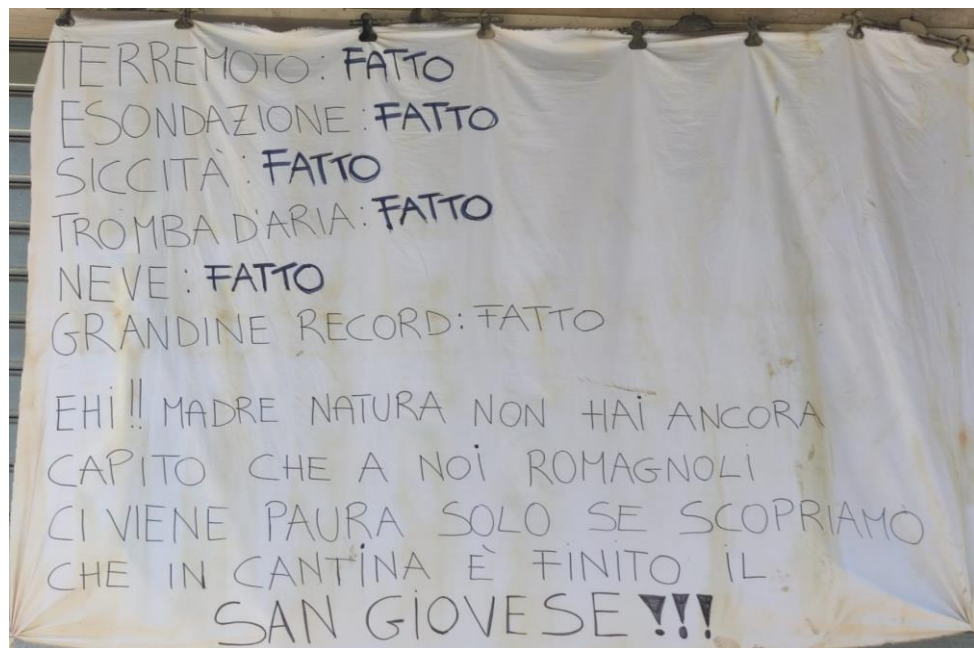 TERREMOTO: FATTO
ESONDAZIONE: FATTO
SICCITÀ: FATTO
TROMBA D'ARIA: FATTO
NEVE: FATTO
GRANDINE RECORD: FATTO
EHI!! MADRE NATURA NON HAI ANCORA
CAPITO CHE A NOI ROMAGNOLI
CI VIENE PAURA SOLO SE SCOPRIAMO
CHE IN CANTINA È FINITO IL
SAN GIOVESE!!!